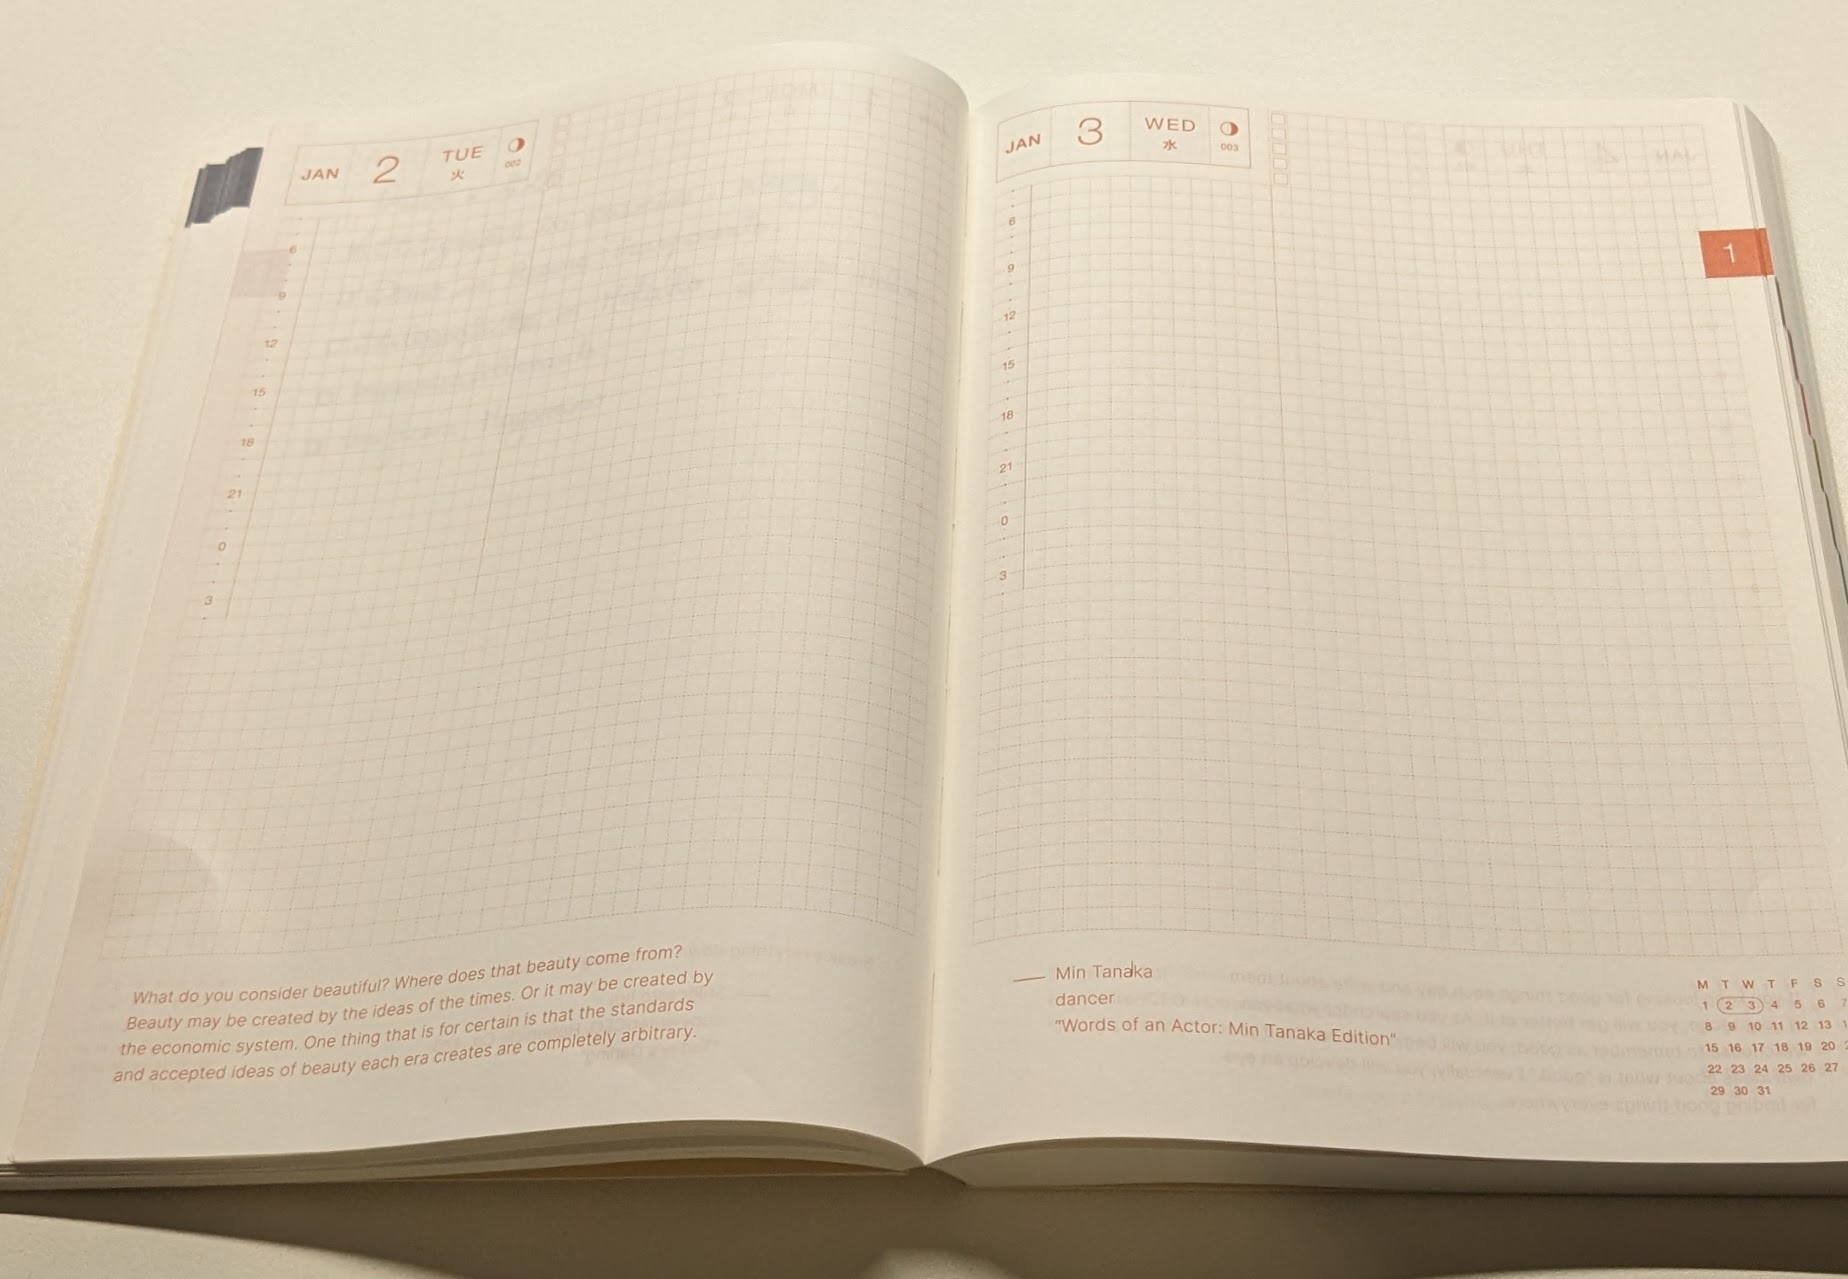 JAN 2 TUE 火 002
6
9
12
15
18
21
0
3
What do you consider beautiful? Where does that beauty come from?
Beauty may be created by the ideas of the times. Or it may be created by
the economic system. One thing that is for certain is that the standards
and accepted ideas of beauty each era creates are completely arbitrary.
JAN 3 WED 水 003
1
6
9
12
15
18
21
0
3
Min Tanaka
dancer
"Words of an Actor: Min Tanaka Edition"
M T W T F S S
1 2 3 4 5 6 7
8 9 10 11 12 13
15 16 17 18 19 20
22 23 24 25 26 27
29 30 31